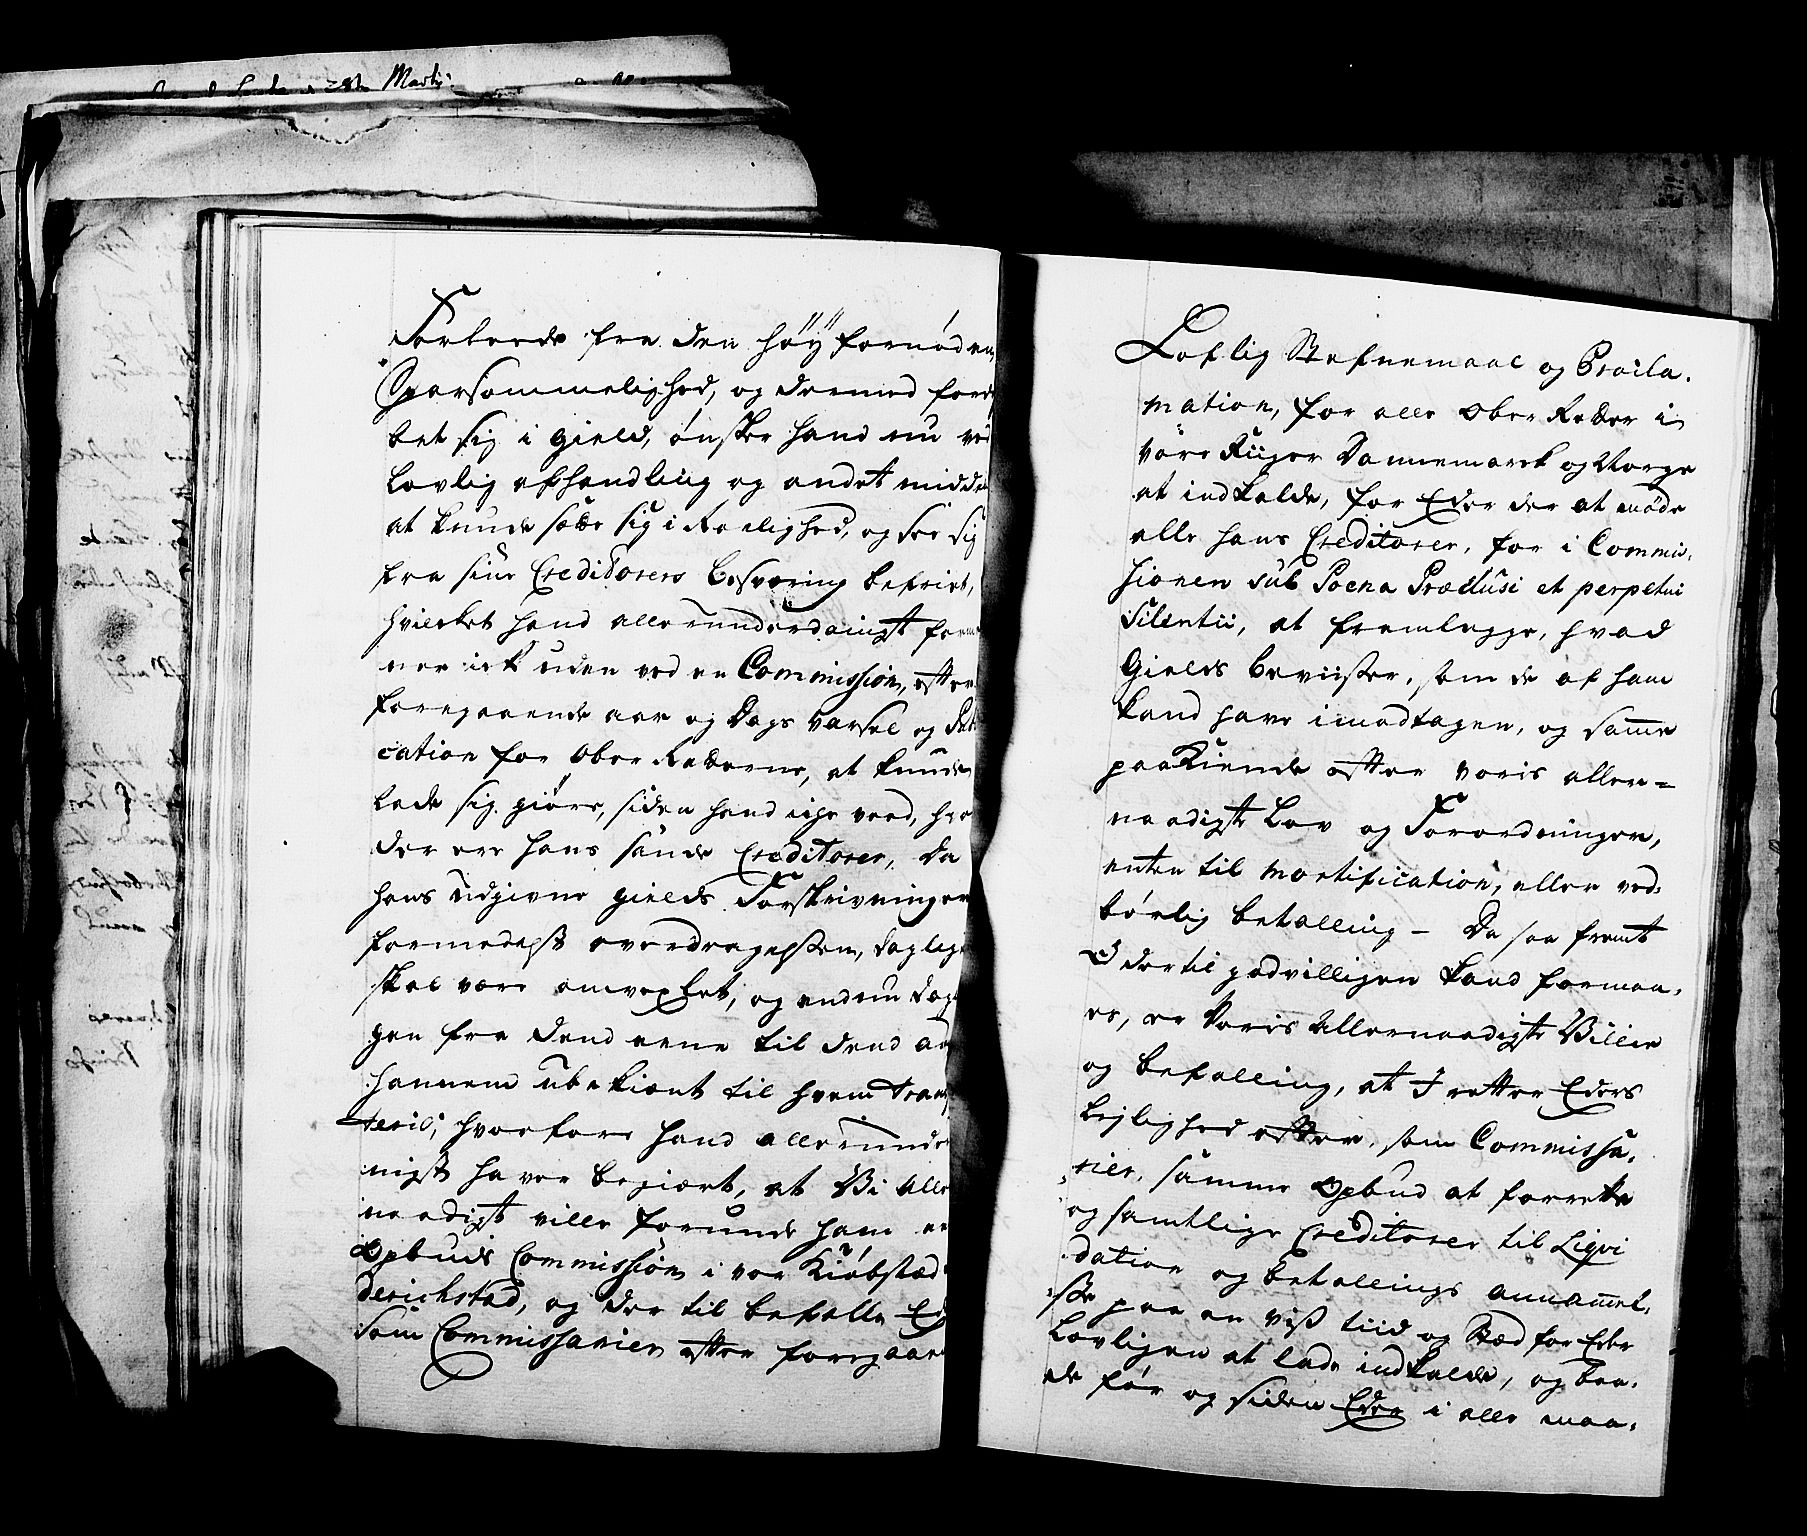 28de Martij
Forleede fra den höÿfornöden
Sparsommelighed, og dermed ford
bet sig i gield, önsker hand nu ved
lovlig afhandling og andet midde
at kunde sætte sig i Roelighed, og see sig
fra sine Creditorers besværing befriet,
hvilcket hand allerunderdanigst form
ner ick uden ved en Commission, efter
foregaaende aar og Dags Varsel og
cation for Ober Retterne, at kunde
lade sig giöre, siden hand iche veed, hvo
der ere hans sande Creditorer, Da
hans udgivne gields Forskrivninger
formedelst overdragelsen, daglig
skal være omvexlet, og endnu dag
gen fra dend eene til dend an
hannem ubekiant til hvem trans
terit; hvorfore hand allerunder
nigst haver begiært, at Vi Aller
naadigst ville forunde ham en
Opbuds Commission i vor Kiöbstæd
derichstad, og der til befalle Ed
som Commissarier efter foregaae
Lovlig Stefnemaal og Procla-
mation, for alle Ober Retter i
vore Riiger Dannemarck og Norge
at indkalde, for Eder der at möde
alle hans Creditorer, for i Commis-
sionen sub Poena Præclusi et perpetui
Silentii, at fremlegge, hvad
Gields beviister, som de af ham
kand have imodtagen, og samme
paakiende efter voris aller-
naadigste Lov og Forordninger,
enten til mortification, eller ved-
börlig betalling - Da saa fremt
I dertil godvilligen kand formaa-
es, er Voris Allernaadigste Villie
og befalling, at I retter Eders
leylighed efter, som Commissa-
rier, samme Opbud at forrette
og samtlige Creditorer til Liqvi
dation og betallings annammel-
se paa en viss tiid og Stæd for Eder
Lovligen at lade indkalde, og baa-
de för og siden Eder i alle maa-